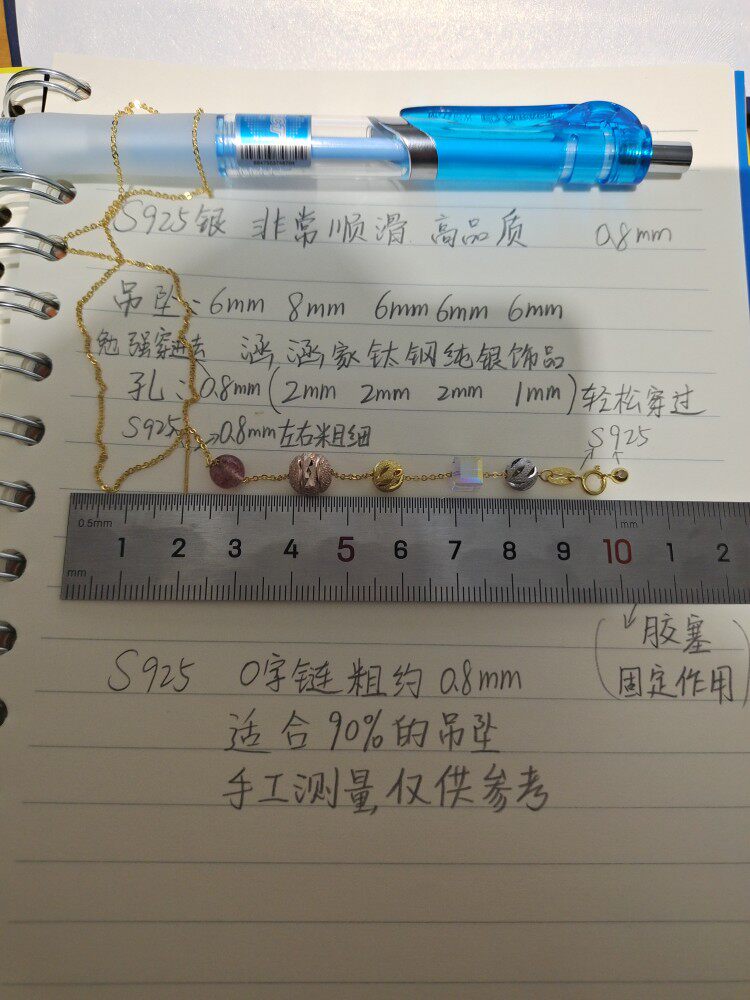 S925银 非常顺滑.高品质 0.8mm
吊坠:6mm 8mm 6mm 6mm 6mm
勉强穿进去 涵涵家钛钢纯银饰品
孔:0.8mm(2mm 2mm 2mm 1mm)轻松穿过
S925 0.8mm左右粗细 S925
0.5mm mm
1 2 3 4 5 6 7 8 9 10 1 2
mm
胶塞
固定作用
S925 O字链粗约0.8mm
适合90%的吊坠
手工测量,仅供参考